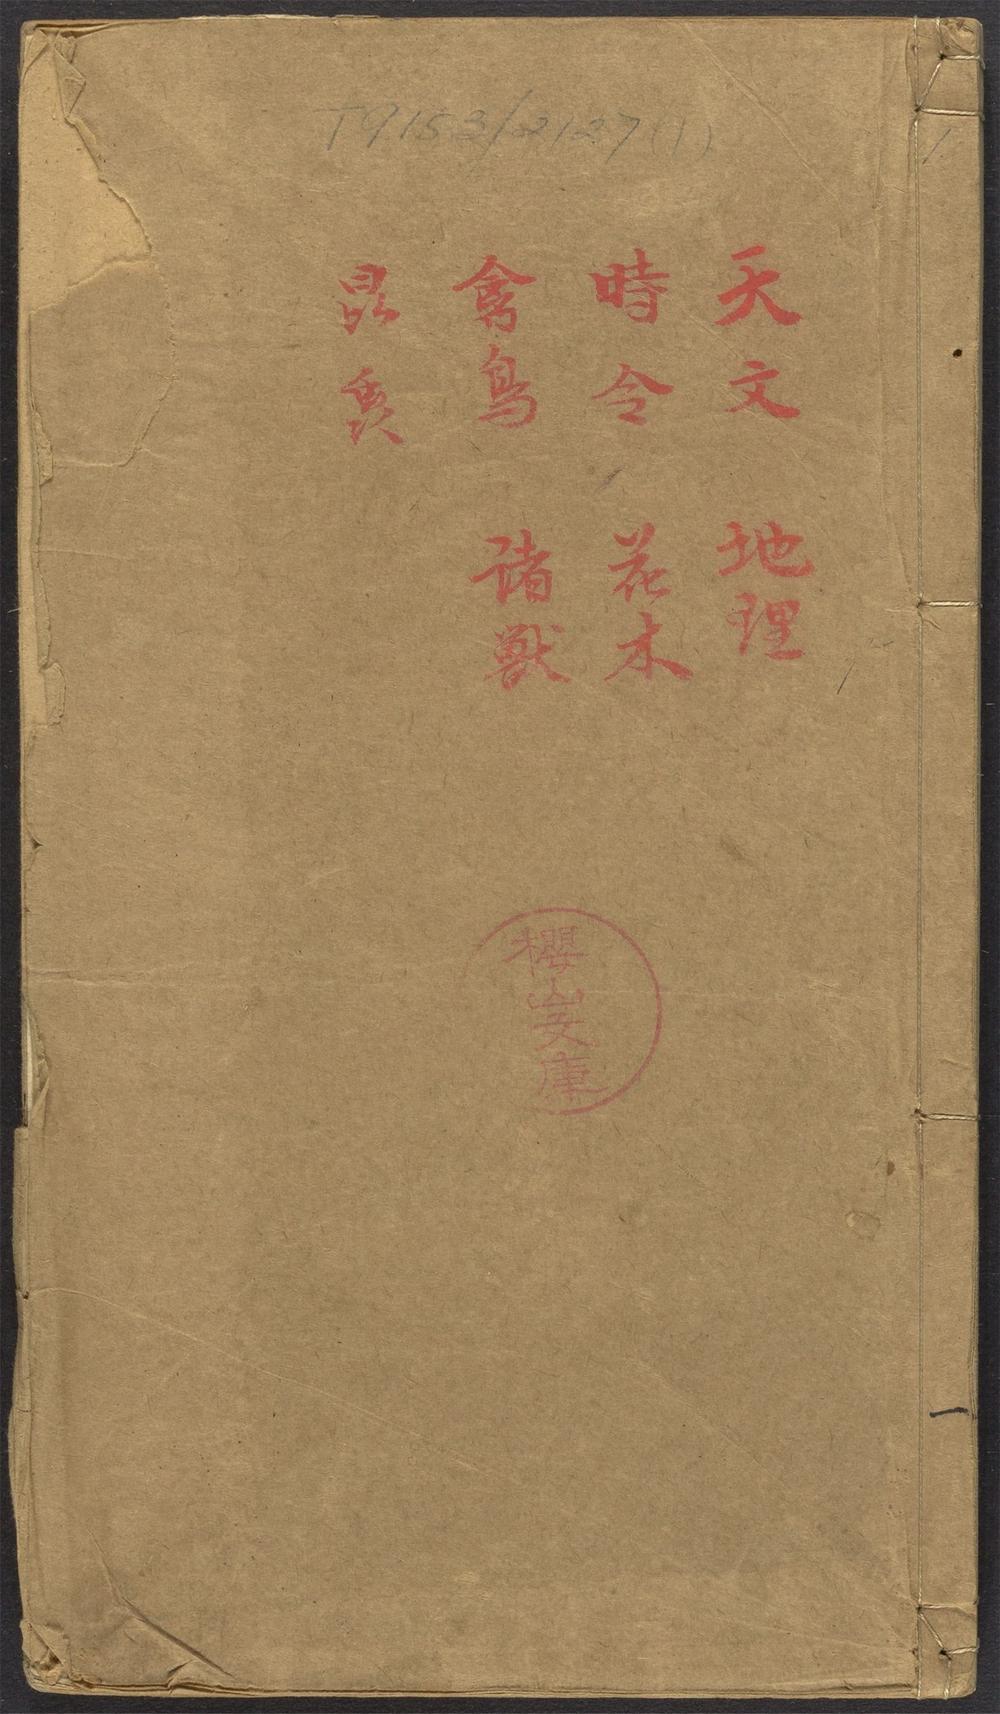 T9153/2127(1)
1
天文 地理
時令 花木
禽鳥 諸獸
昆虫
櫻山文庫